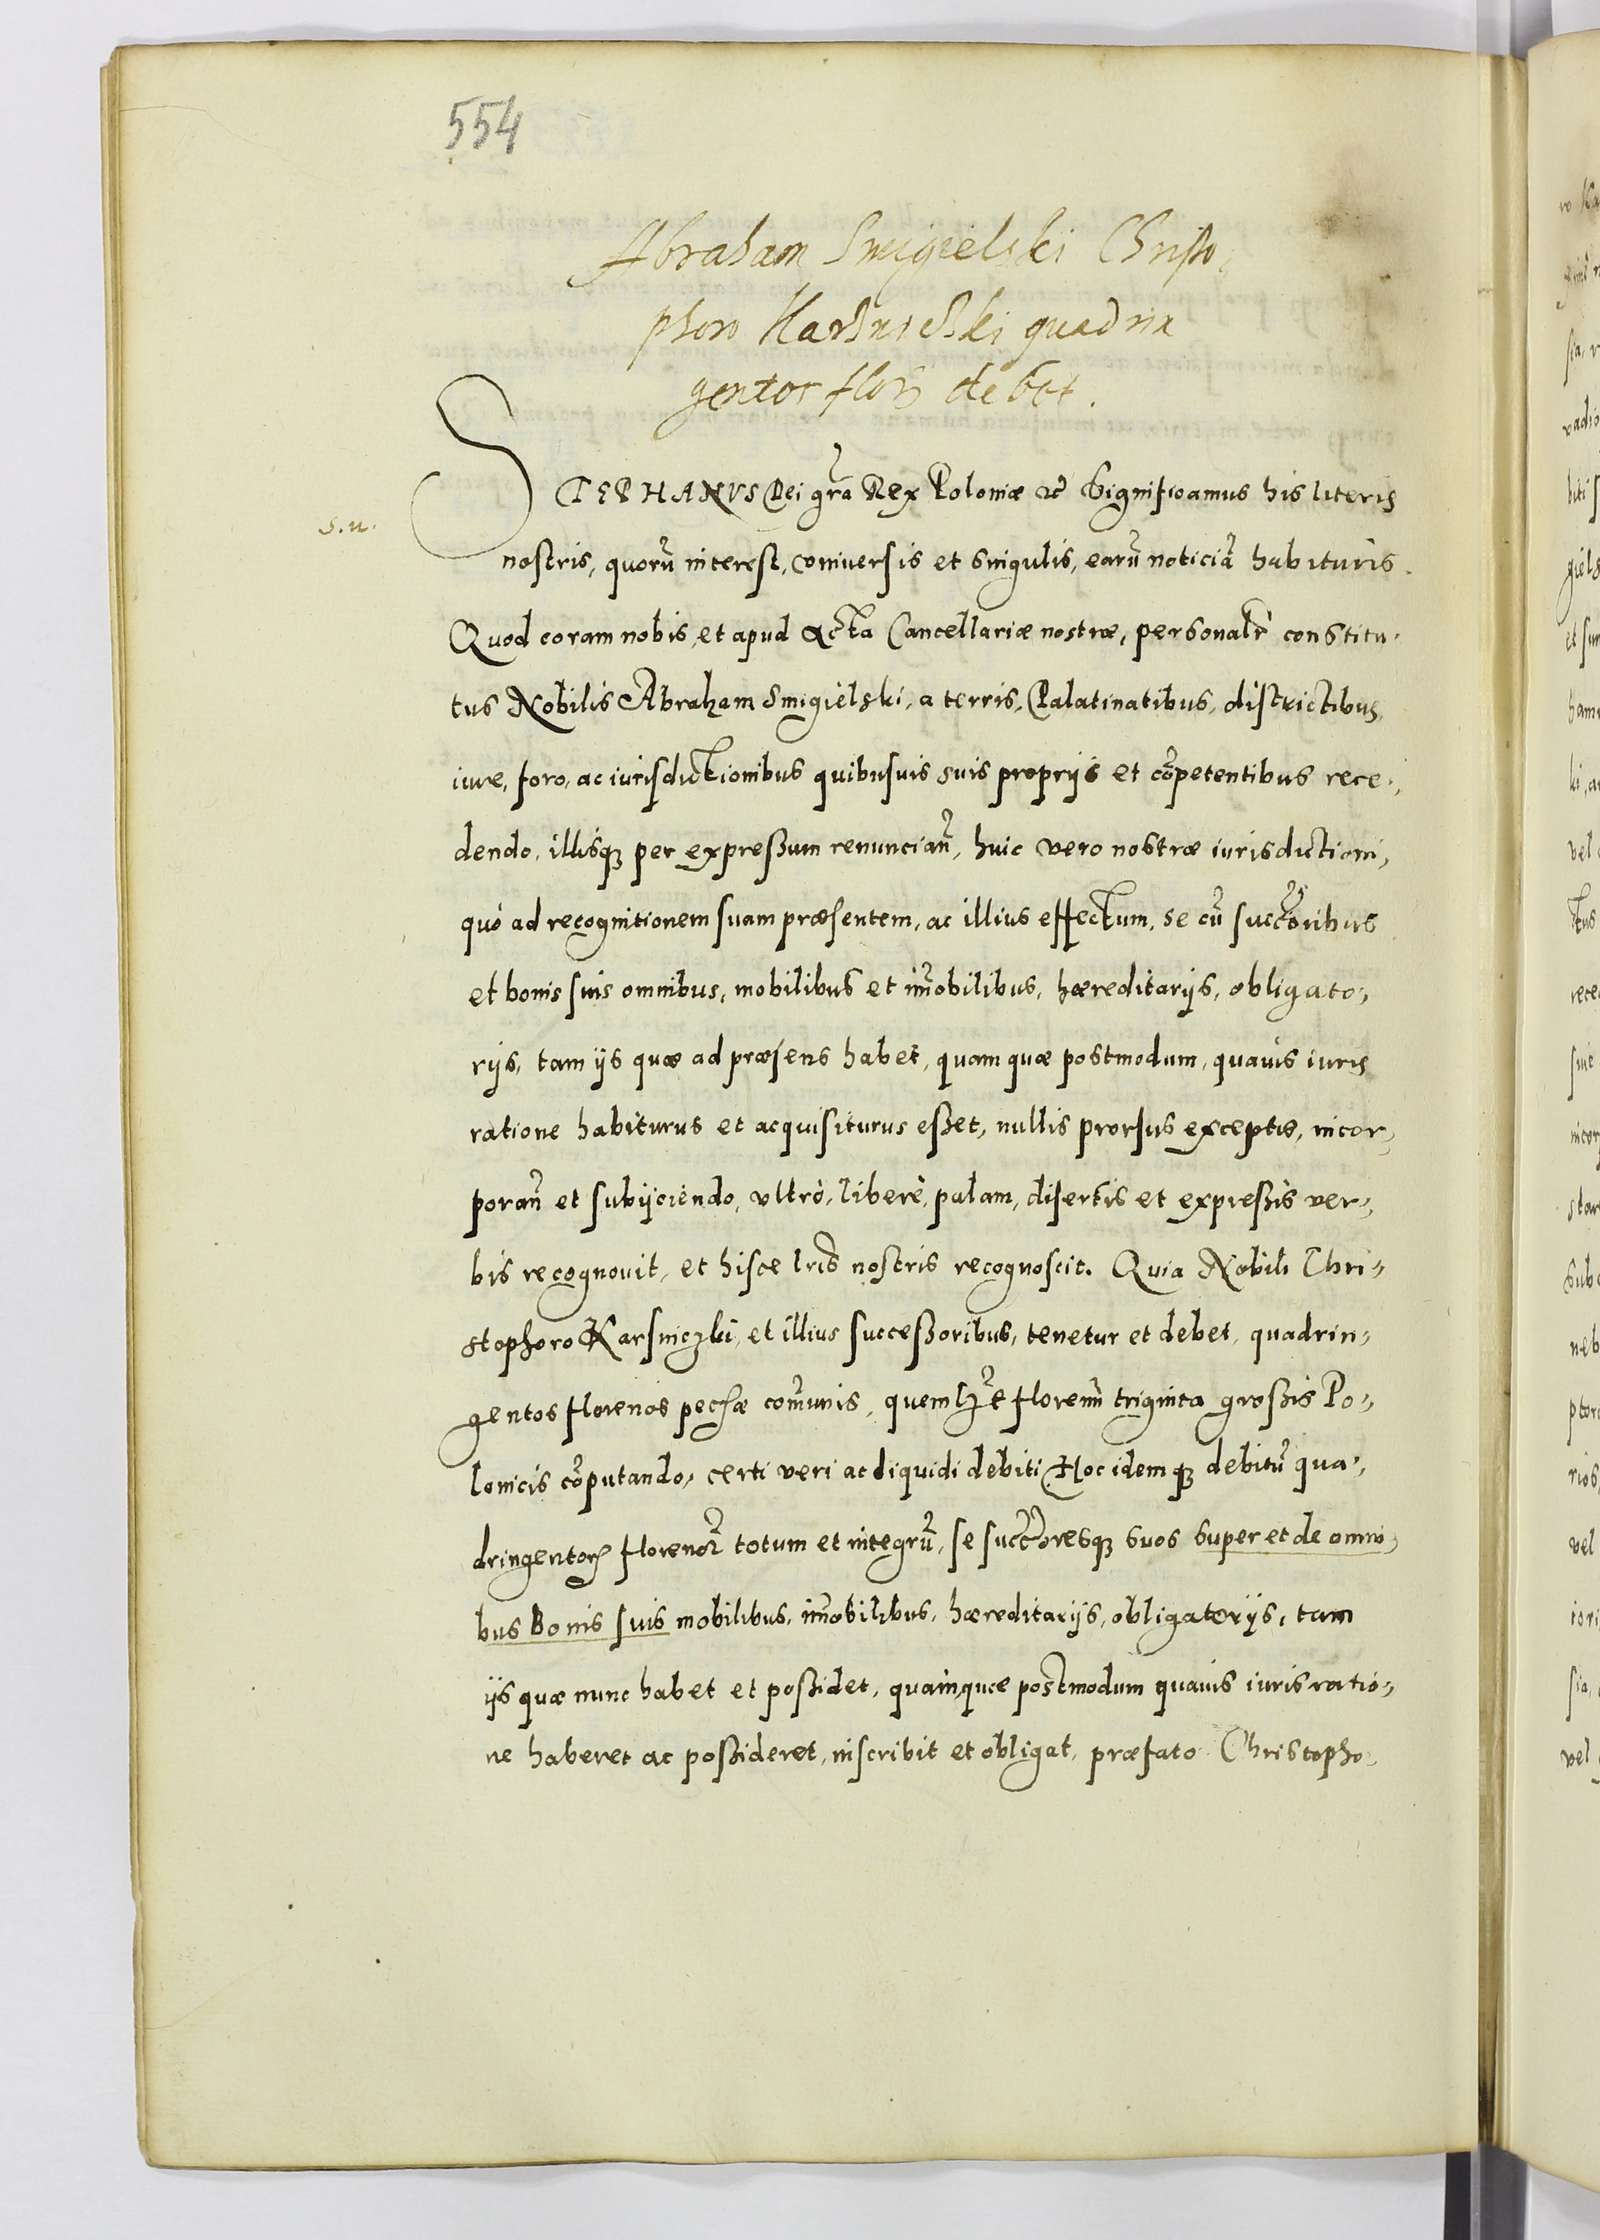 554
Abraham Smigielski Christo,
phoro Karsnicki quadrin
gentos flor debet.
STEPHANVS Dei gr̃a Rex Poloniæ etc̃ Significamus his literis
s. n.
nostris, quorũ interest, vniuersis et singulis, earũ noticiã habituris.
Quod coram nobis, et apud Acta Cancellariæ nostræ, personalr̃ constitu,
tus Nobilis Abraham Smigielski, a terris, Palatinatibus, districtibus,
iure, foro, ac iurisdictionibus quibusuis suis proprijs et cõpetentibus rece,
dendo, illisqꝫ per expreßum renuncian̄, huic vero nostræ iurisdictioni,
quò ad recognitionem suam præsentem, ac illius effectum, se cũ succ̃oribus
et bonis suis omnibus, mobilibus et im̃obilibus, hæreditarijs, obligato,
rijs, tam ijs quæ ad præsens habet, quam quæ postmodum, quauis iuris
ratione habiturus et acquisiturus eßet, nullis prorsus exceptis, incor,
poran̄ et subijciendo, vltrò, liberè, palam, disertis et expreßis ver,
bis recognouit, et hisce lr̃is nostris recognoscit. Quia Nobili Chri,
stophoro Karsniczki, et illius succeßoribus, tenetur et debet, quadrin,
gentos florenos pec̃æ com̃unis, quemlꝫt florenũ triginta großis Po,
lonicis cõputando, certi veri ac liquidi debiti Hoc idemqꝫ debitũ qua,
dringentorꝝ florenor̃ totum et integrũ, se succ̃oresqꝫ suos super et de omni,
bus Bonis suis mobilibus, im̃obilibus, hæreditarijs, obligatorijs, tam
ijs quæ nunc habet et poßidet, quam quæ postmodum quauis iuris ratio,
ne haberet ac poßideret, inscribit et obligat, præfato Christopho,